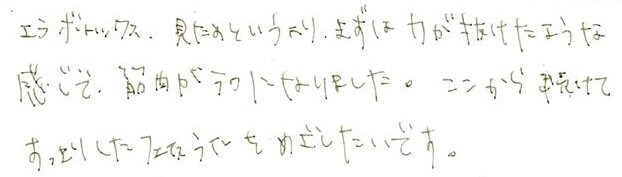 エラボトックス、見ためというより、まずは力が抜けたような
感じで、筋肉がラクになりました。ここから続けて
すっきりしたフェイスラインをめざしたいです。